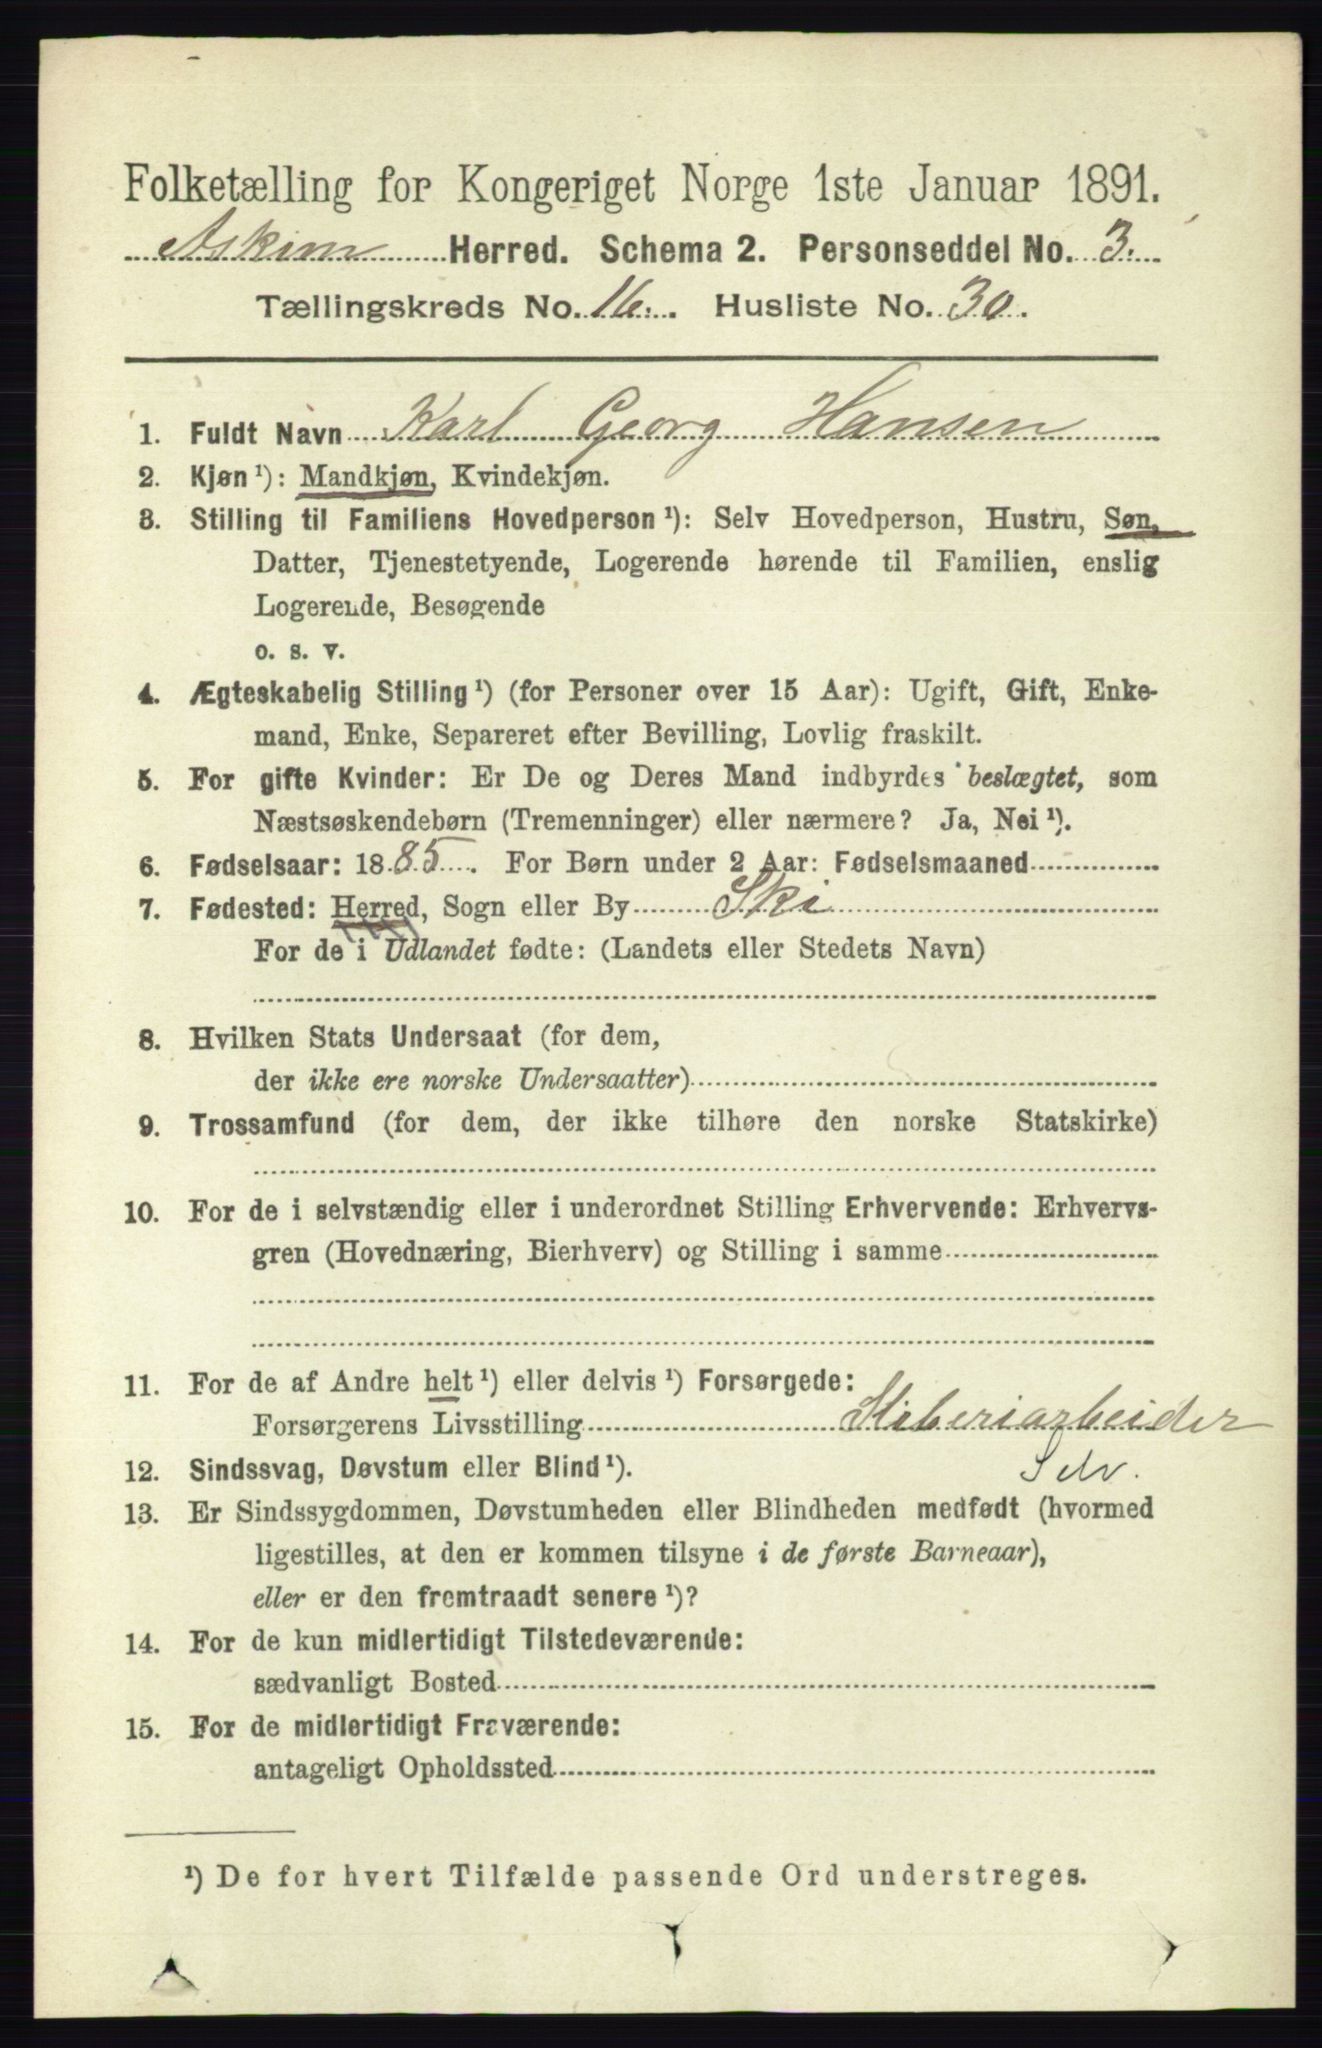 Folketælling for Kongeriget Norge 1ste Januar 1891.
Askim Herred. Schema 2. Personseddel No. 3.
Tællingskreds No. 16. Husliste No. 30.
1. Fuldt Navn Karl Georg Hansen
2. Kjøn ¹): Mandkjøn, Kvindekjøn.
3. Stilling til Familiens Hovedperson ¹): Selv Hovedperson, Hustru, Søn,
Datter, Tjenestetyende, Logerende hørende til Familien, enslig
Logerende, Besøgende
o. s. v.
4. Ægteskabelig Stilling ¹) (for Personer over 15 Aar): Ugift, Gift, Enke-
mand, Enke, Separeret efter Bevilling, Lovlig fraskilt.
5. For gifte Kvinder: Er De og Deres Mand indbyrdes beslægtet, som
Næstsøskendebørn (Tremenninger) eller nærmere? Ja, Nei ¹).
6. Fødselsaar: 1885. For Børn under 2 Aar: Fødselsmaaned
7. Fødested: Herred, Sogn eller By Ski
For de i Udlandet fødte: (Landets eller Stedets Navn)
8. Hvilken Stats Undersaat (for dem,
der ikke ere norske Undersaatter)
9. Trossamfund (for dem, der ikke tilhøre den norske Statskirke)
10. For de i selvstændig eller i underordnet Stilling Erhvervende: Erhvervs-
gren (Hovednæring, Bierhverv) og Stilling i samme
11. For de af Andre helt ¹) eller delvis ¹) Forsørgede:
Forsørgerens Livsstilling Sliberiarbeider
12. Sindssvag, Døvstum eller Blind ¹). Selv.
13. Er Sindssygdommen, Døvstumheden eller Blindheden medfødt (hvormed
ligestilles, at den er kommen tilsyne i de første Barneaar),
eller er den fremtraadt senere ¹)?
14. For de kun midlertidigt Tilstedeværende:
sædvanligt Bosted
15. For de midlertidigt Fraværende:
antageligt Opholdssted
¹) De for hvert Tilfælde passende Ord understreges.